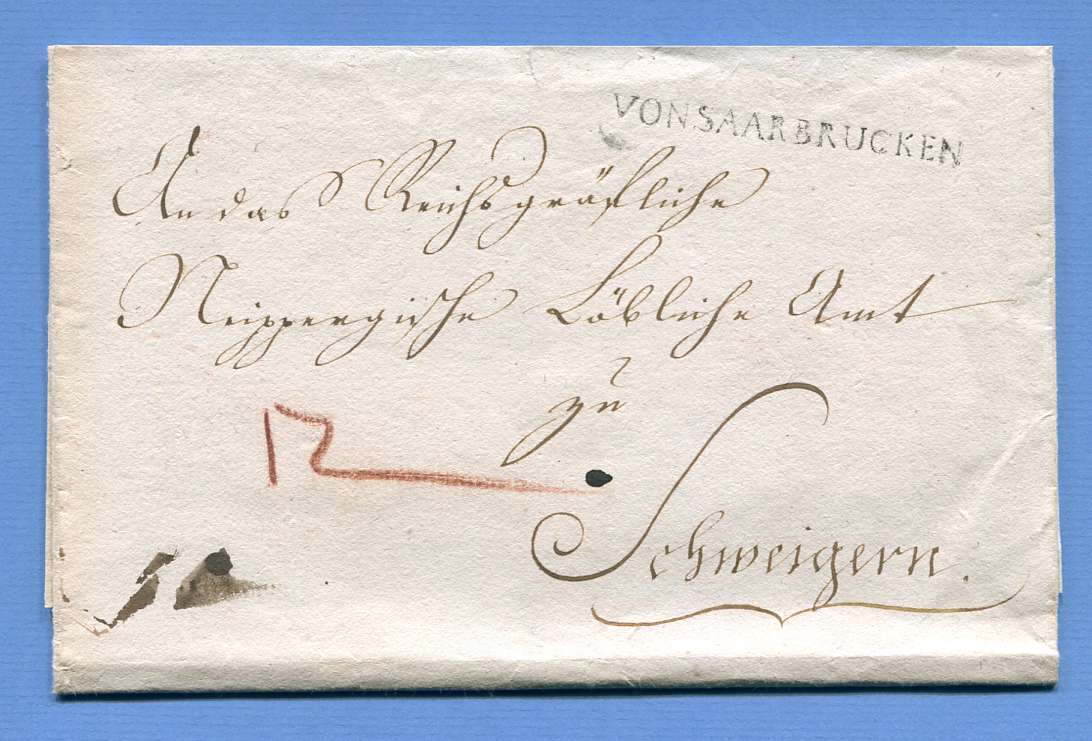 VON SAARBRUCKEN
An das Reichsgräfliche
Neippergische Löbliche Amt
zu
12
Schweigern.